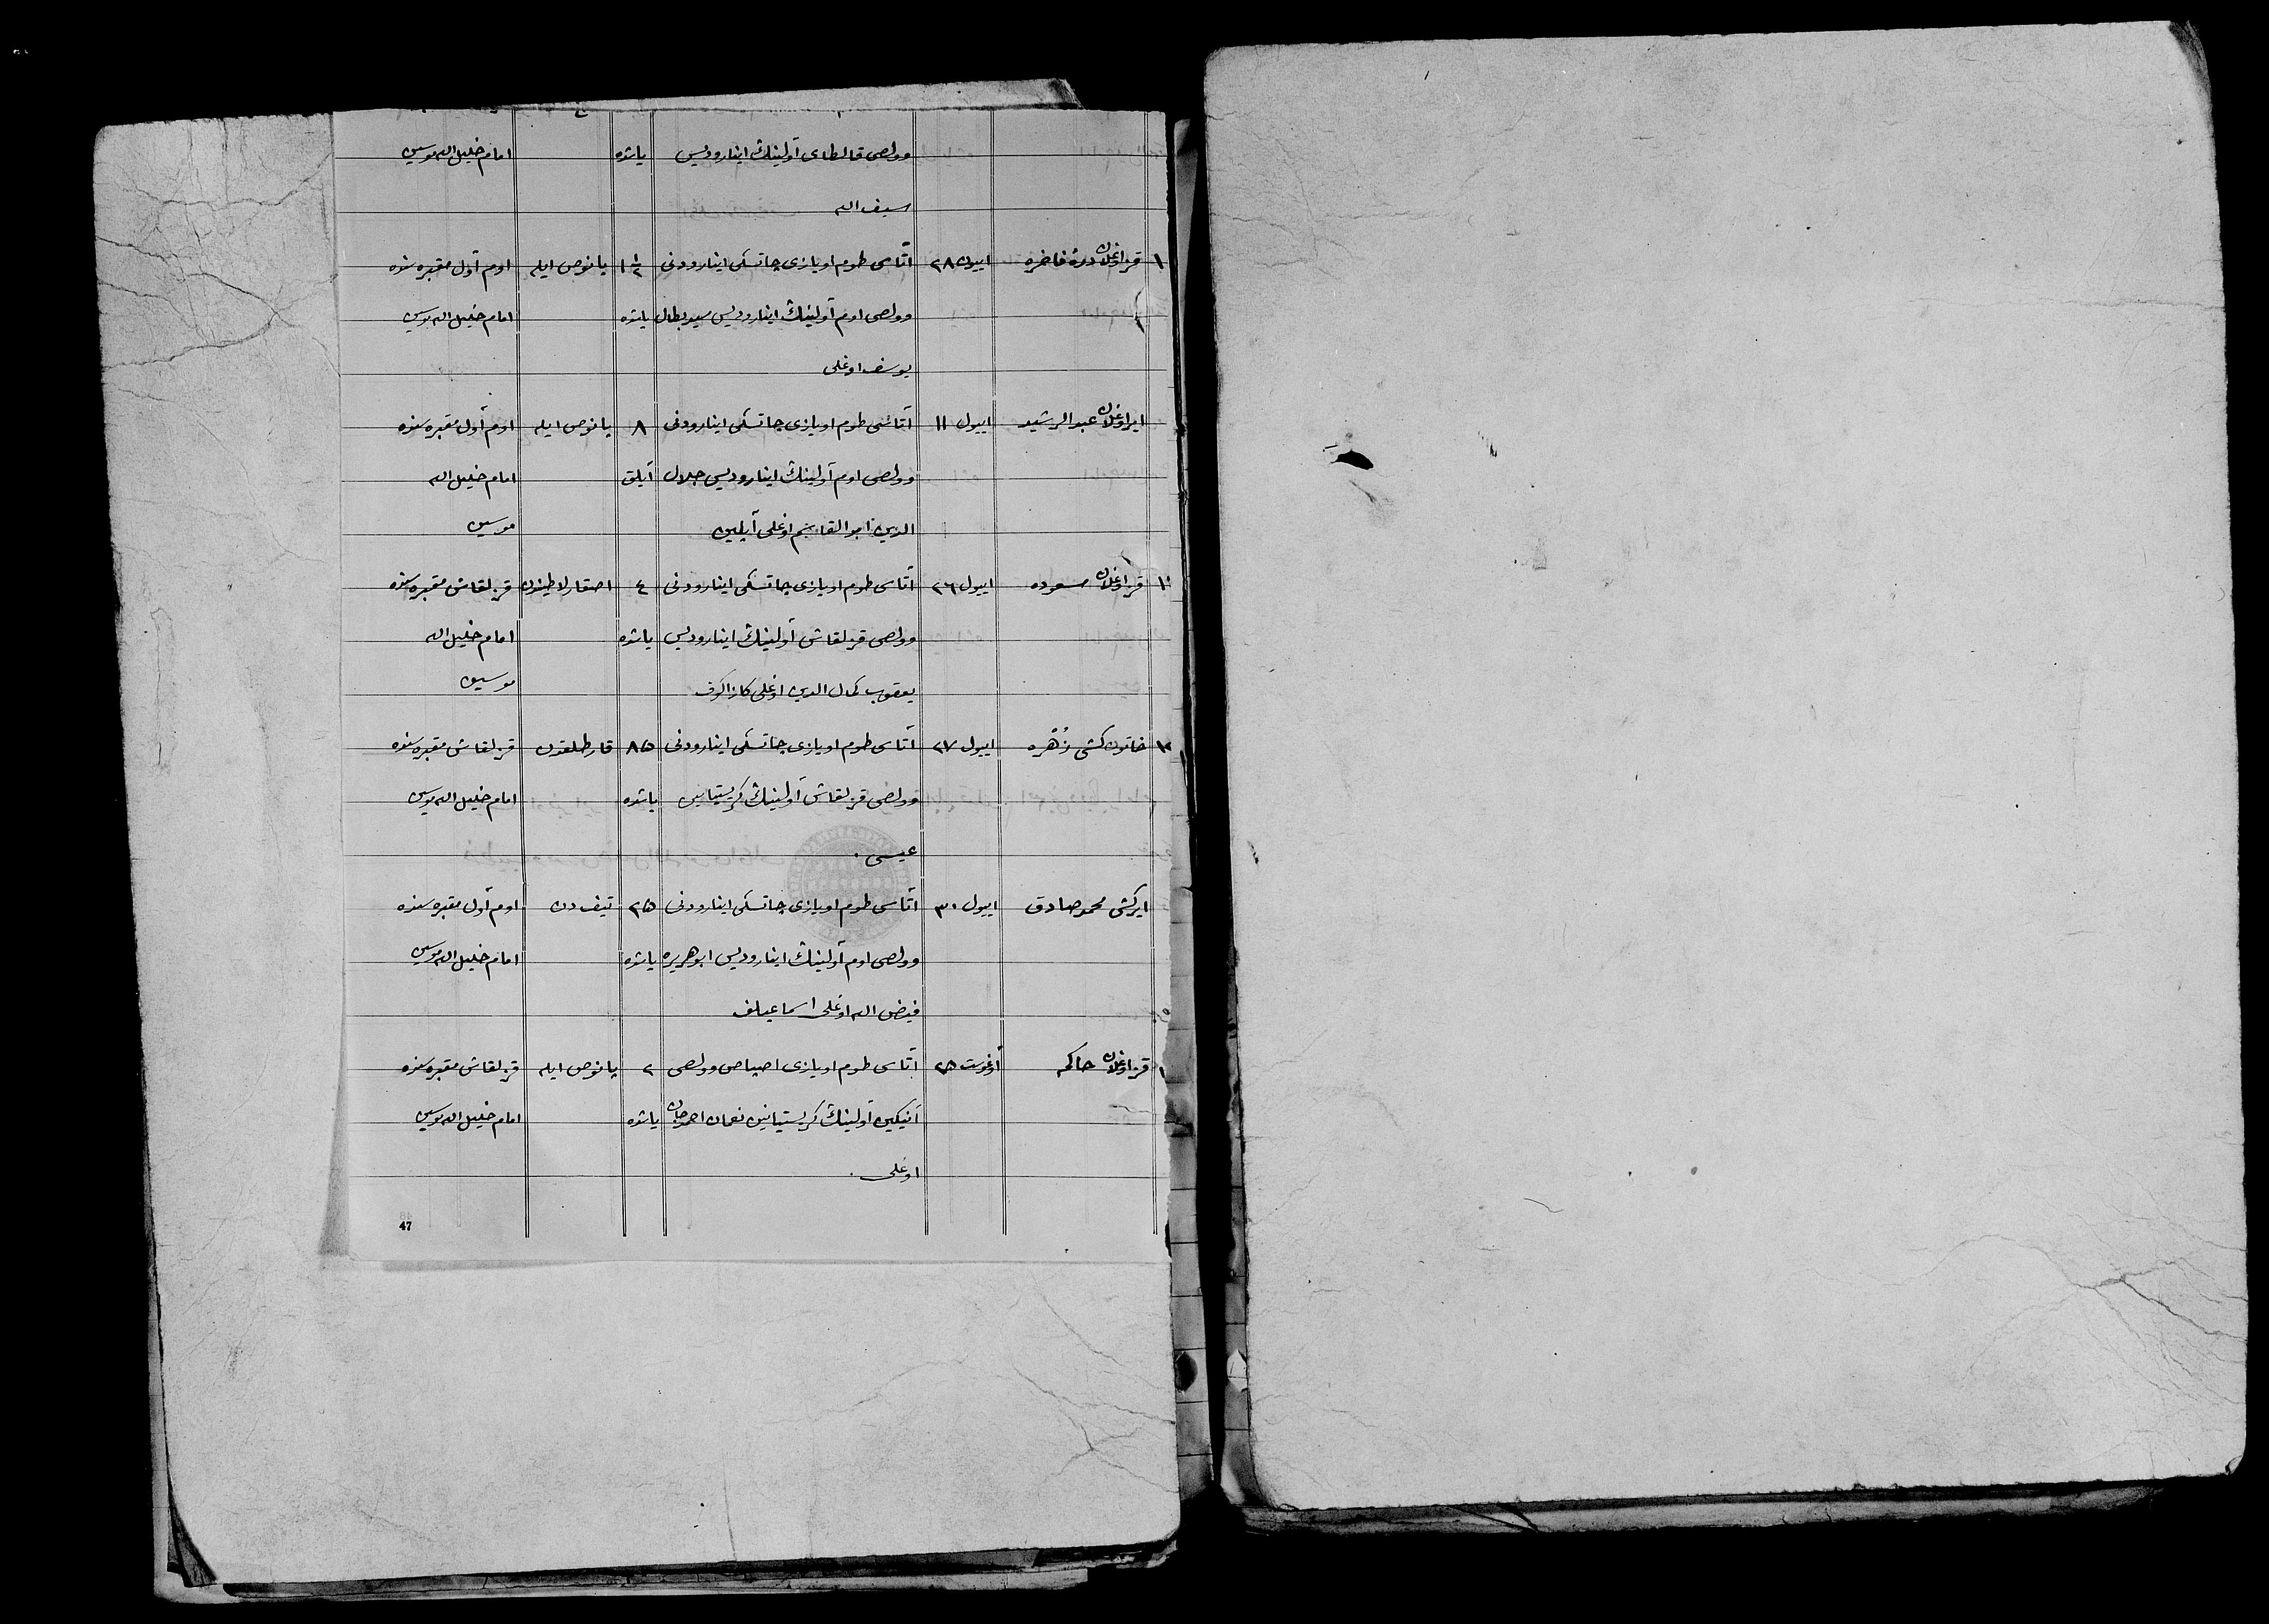 وولصی قالطای آولینك اینارودیس یاشده امام خلیل الله موسین
سیف الله
١ قز اوغلان درۀ فاخره اییون ٢٨ آتاسی طوم اویازی چاتسکی اینارودنی ١ ١/٢ یانوص ایله اوم آول مقبره سنده
وولصی اوم آولینك اینارودیس سید بطال یاشده امام خلیل الله موسین
یوسف اوغلی
ایر اوغلان عبد الرشید اییول ١١ آتاسی طوم اویازی چاتسکی اینارودنی ٨ یانوص ایله اوم آول مقبره سنده
وولصی اوم آولینك اینارودیس جلال آیلق امام خلیل الله
الدین ابو القاسم اوغلی آپلین موسین
قز اوغلان مسعوده اییول ٢٦ آتاسی طوم اویازی چاتسکی اینارودنی ٤ اصقارلاطینون قزلقاش مقبره سنده
وولصی قزلقاش آولینك اینارودیس یاشده امام خلیل الله
یعقوب کمال الدین اوغلی موسین
خاتون کشی زُهره اییول ٢٧ آتاسی طوم اویازی چاتسکی اینارودنی ٨٥ قارطلقدن قزلقاش مقبره سنده
وولصی قزلقاش آولینك کریستیانین یاشده امام خلیل الله موسین
عیسی .
ایر کشی محمد صادق اییول ٣٠ آتاسی طوم اویازی چاتسکی اینارودنی ٢٥ تیف دن اوم آول مقبره سنده
وولصی اوم آولینك اینارودیس ابو هریره یاشده امام خلیل الله موسین
فیض الله اوغلی اسماعیلف
١ قز اوغلان حاکمه آوغوست ٢٥ آتاسی طوم اویازی اصپاص وولصی ٢ یانوص ایله قزلقاش مقبره سنده
آنیکین آولینك کریستیانین نعمان احمدجان یاشده امام خلیل الله موسین
اوغلی .
47